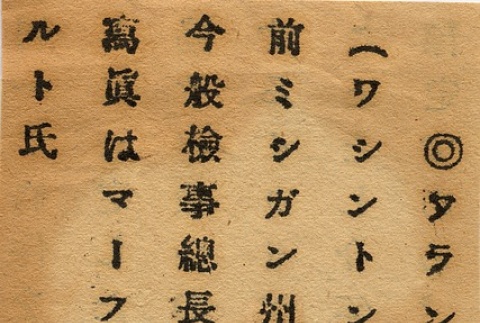 ◎タラン
（ワシントン
前ミシガン州
今般檢事總長
寫眞はマーフ
ルト氏